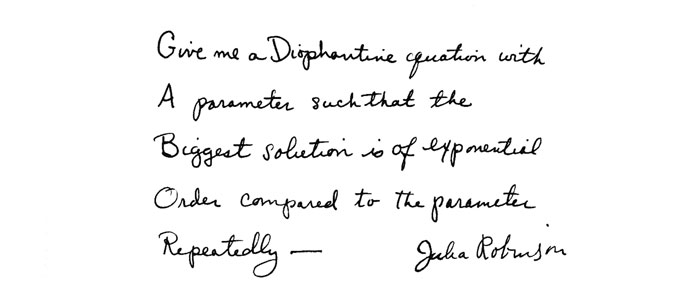 Give me a Diophantine equation with
A parameter such that the
Biggest solution is of exponential
Order compared to the parameter
Repeatedly — Julia Robinson